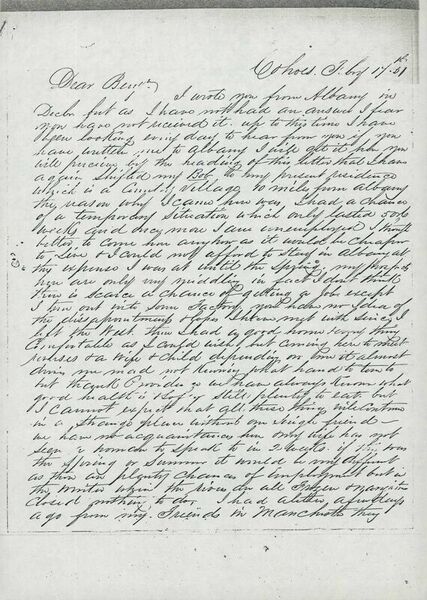 Cohoes. Feby 17th 51
Dear Benj.
I wrote you from Albany in
Decbr but as I have not had an answer I fear
you have not received it. up to this time I have
been looking every day to hear from you if you
have written me to albany I will get it here you
will perceive by the heading of this letter that I have
again shifted my Bob to my present residence
which is a village 10 mile from albany
the reason why I came here was, I had a chance
of a temporary situation which only lasted 5 or 6
weeks and once more I am unemployed I thought
better to come here anyhow as it would be cheaper
to live & I could not afford to stay in albany at
the expense I was at until the Spring, my hopes
here are only very middling in fact I don't think
there is scarce a chance of getting a job except
I turn out in some Factory you have no Idea of
the disappointments I have met with since I
left the West. there I had a good home every thing
comfortable as I could wish, but coming here to meet
& a Wife & Child depending on me it almost
drives me mad not knowing what hand to turn to
but thank Providence we have always known what
good health is & of still plenty to eat, but
I cannot expect that all these things will continue
in a strange place without one single friend —
we have no acquaintances here my wife has not
seen a woman to speak to in 2 weeks. if it was
the Spring or Summer it would be very different
as there are plenty chances of employment but in
the winter when the rivers are all Frozen & navigation
closed nothing to do. I had a letter a few days
ago from my Friends in Manchester they